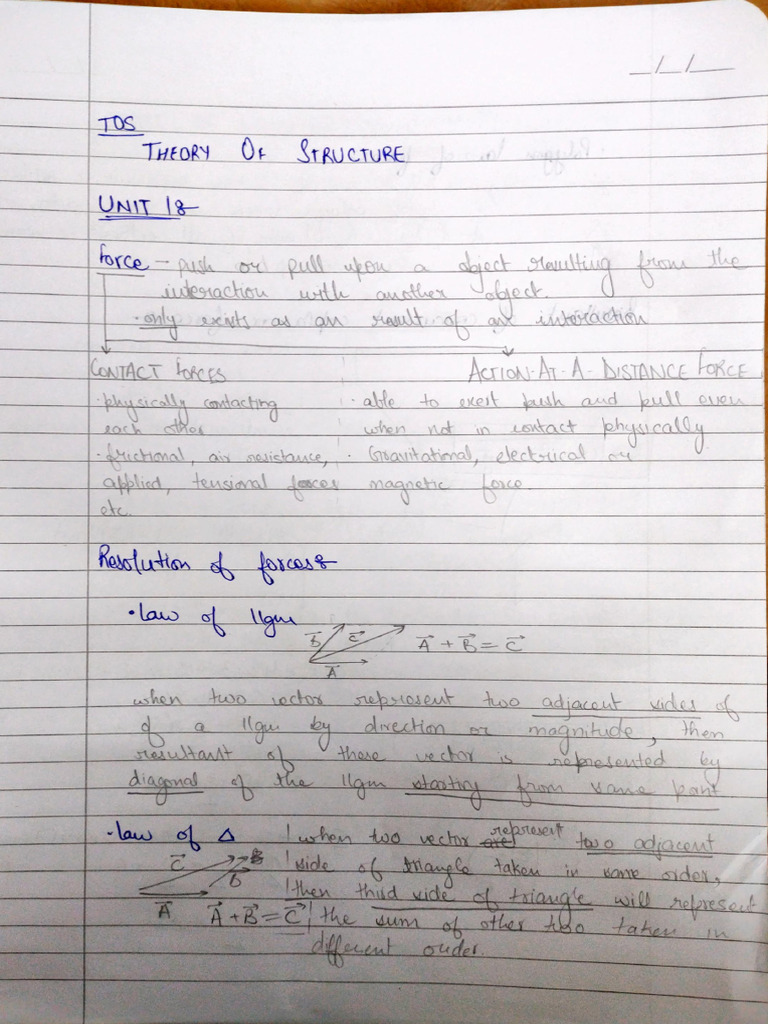 __/__/____
TOS
THEORY OF STRUCTURE
UNIT 1:-
Force - push or pull upon a object resulting from the
interaction with another object.
· only exists as an result of an interaction
CONTACT FORCES
ACTION-AT-A-DISTANCE FORCE
· physically contacting
each other
· frictional, air resistance,
applied, tensional forces
etc.
· able to exert push and pull even
when not in contact physically
· Gravitational, electrical or
magnetic force.
Resolution of forces:-
· law of llgm
B C A
A + B = C
when two vector represent two adjacent sides of
of a llgm by direction or magnitude, then
resultant of these vector is represented by
diagonal of the llgm starting from same point
· law of Δ
C B B
A
A + B = C
when two vector are represent two adjacent
side of triangle taken in same order,
then third side of triangle will represent
the sum of other two taken in
different order.